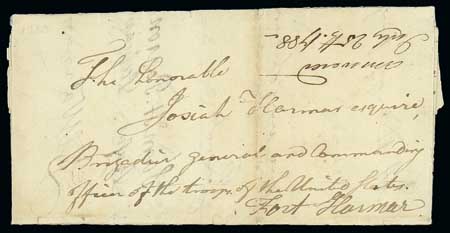 The Honorable
Josiah Harmar esquire,
Brigadier general and Commanding
officer of the troops of the United States.
Fort Harmar.
July 25th. 1788